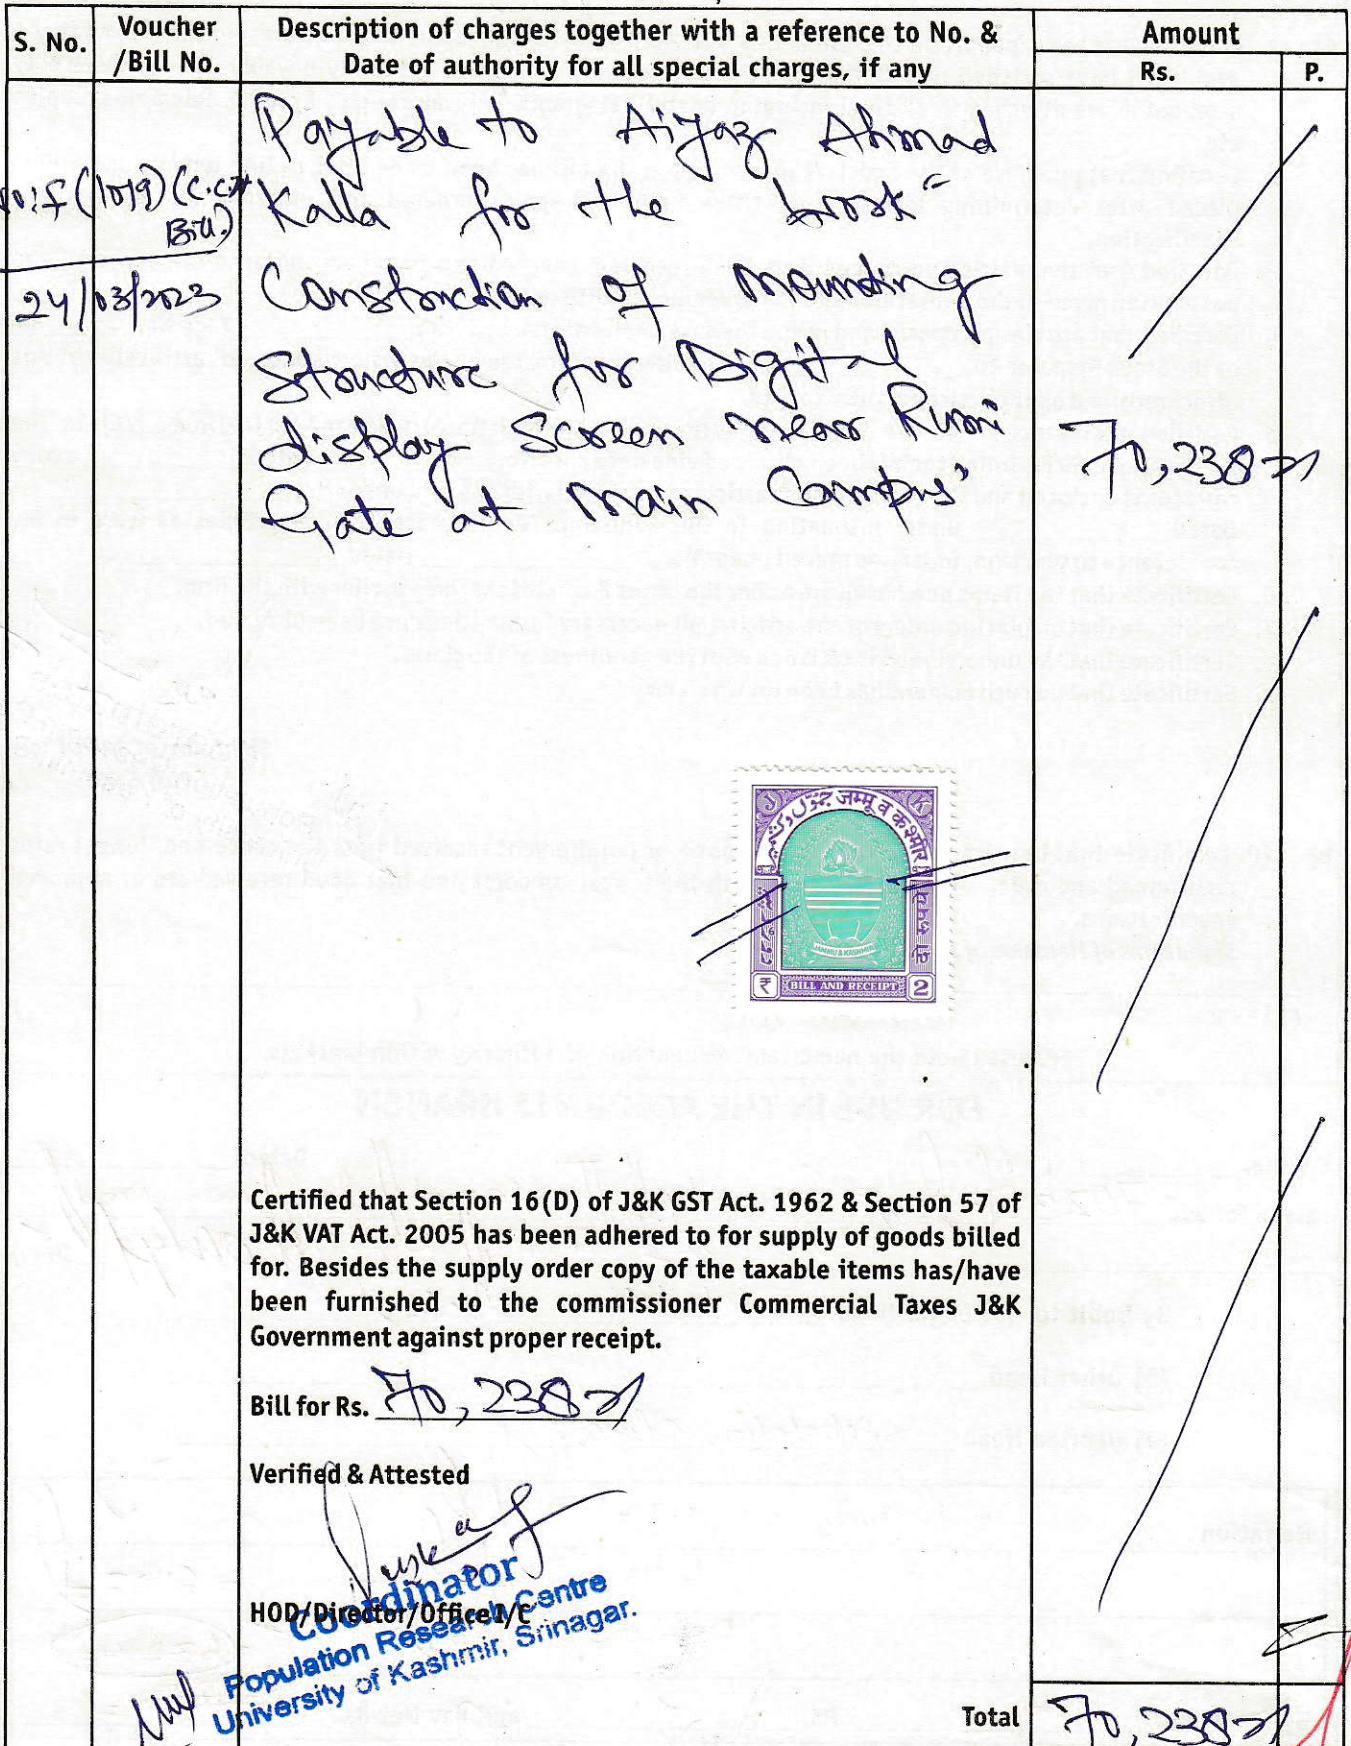 S. No.
Voucher
/Bill No.
Description of charges together with a reference to No. &
Date of authority for all special charges, if any
Amount
Rs.
P.
(1019) (C.C.
Bill)
24/03/2023
Payable to Aijaz Ahmad
Kalla for the work "
Construction of mounting
Structure for Digital
display Screen near Rumi
Gate at main Campus"
70,238=
जम्मू व कश्मीर
JAMMU & KASHMIR
₹ BILL AND RECEIPT 2
Certified that Section 16(D) of J&K GST Act. 1962 & Section 57 of
J&K VAT Act. 2005 has been adhered to for supply of goods billed
for. Besides the supply order copy of the taxable items has/have
been furnished to the commissioner Commercial Taxes J&K
Government against proper receipt.
Bill for Rs. 70,238=
Verified & Attested
HOD/Director/Office I/C
Coordinator
Population Research Centre
University of Kashmir, Srinagar.
Total 70,238=